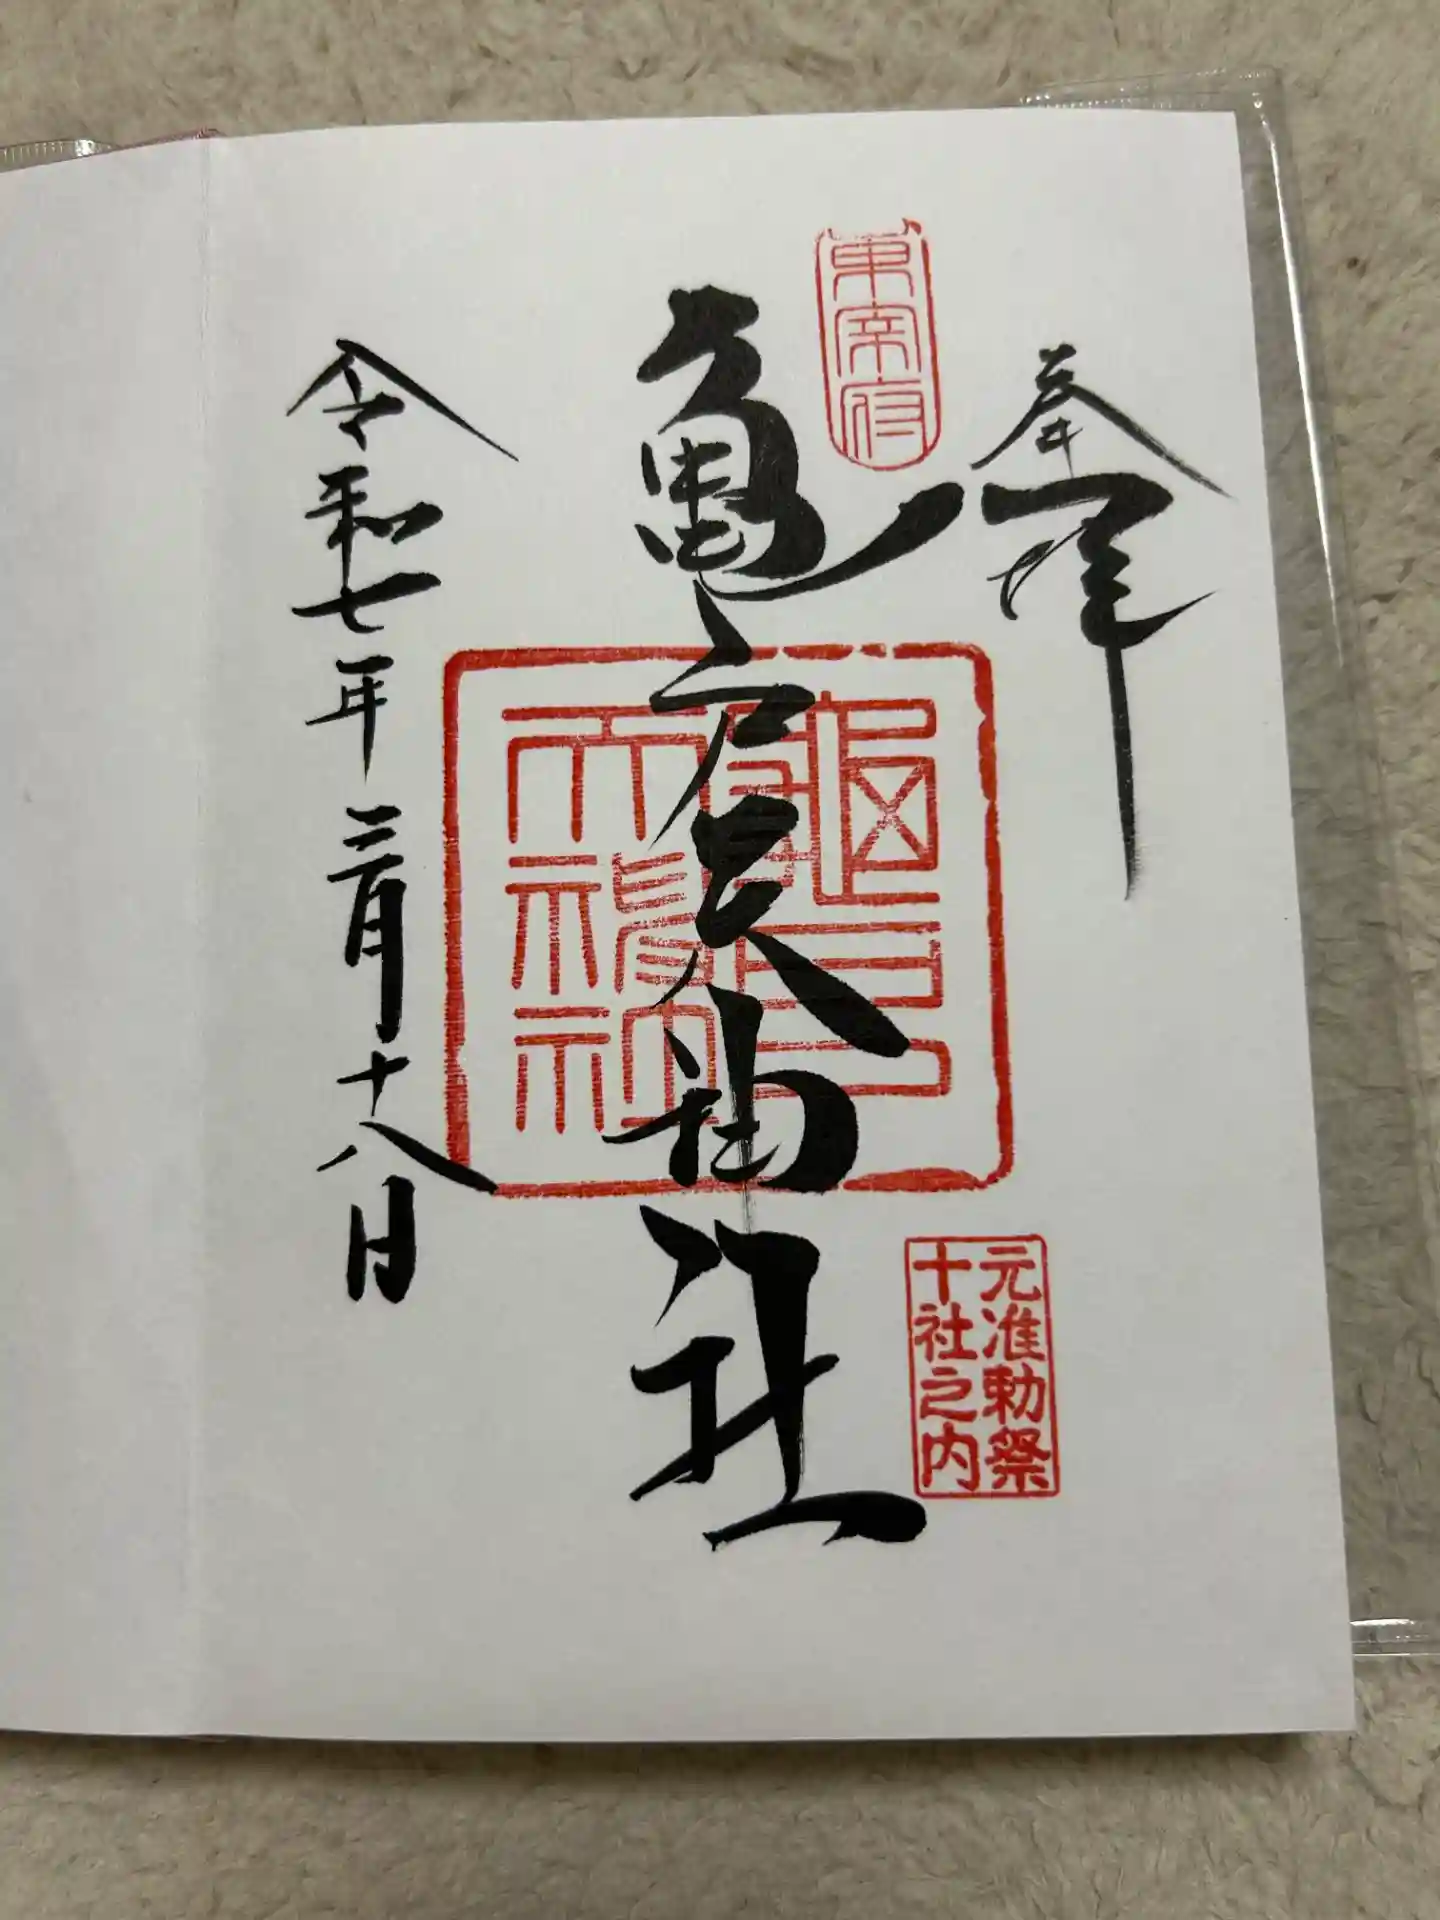 奉拝
東宰府
亀戸天神社
龜戸天神社
元准勅祭
十社之内
令和七年三月十八日